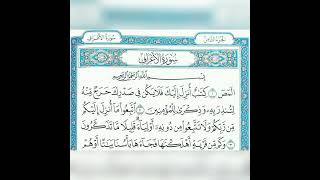 الجزء الثامن
سورة الأعراف
سُورَةُ الأَعْرَافِ
بِسْمِ اللَّهِ الرَّحْمَٰنِ الرَّحِيمِ
الٓمٓصٓ ١ كِتَٰبٌ أُنزِلَ إِلَيْكَ فَلَا يَكُن فِى صَدْرِكَ حَرَجٌ مِّنْهُ
لِتُنذِرَ بِهِۦ وَذِكْرَىٰ لِلْمُؤْمِنِينَ ٢ ٱتَّبِعُوا۟ مَآ أُنزِلَ إِلَيْكُم
مِّن رَّبِّكُمْ وَلَا تَتَّبِعُوا۟ مِن دُونِهِۦٓ أَوْلِيَآءَ قَلِيلًا مَّا تَذَكَّرُونَ
٣ وَكَم مِّن قَرْيَةٍ أَهْلَكْنَٰهَا فَجَآءَهَا بَأْسُنَا بَيَٰتًا أَوْ هُمْ